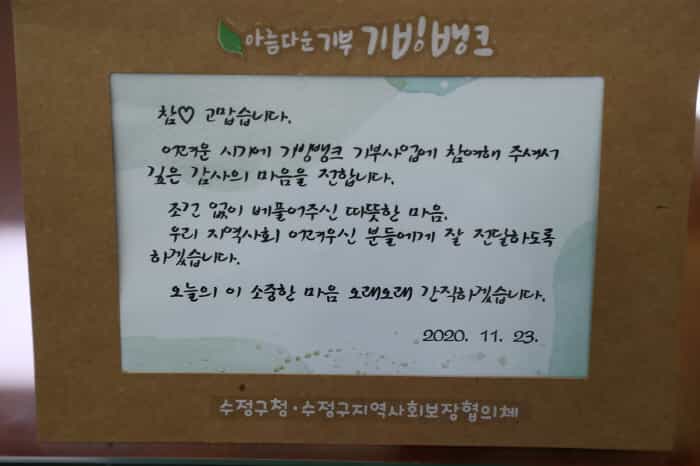 아름다운 기부 기빙뱅크
참♡ 고맙습니다.
어려운 시기에 기빙뱅크 기부사업에 참여해 주셔서
깊은 감사의 마음을 전합니다.
조건 없이 베풀어주신 따뜻한 마음.
우리 지역사회 어려우신 분들에게 잘 전달하도록
하겠습니다.
오늘의 이 소중한 마음 오래오래 간직하겠습니다.
2020. 11. 23.
수정구청·수정구지역사회보장협의체